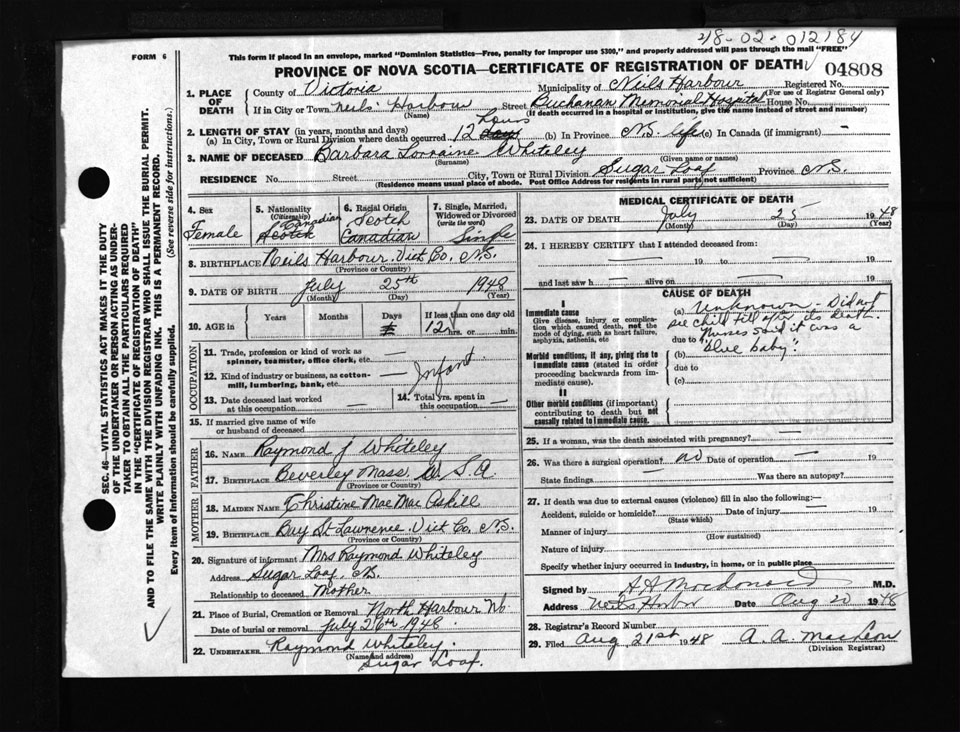 48-02-012184
FORM 6
This form if placed in an envelope, marked "Dominion Statistics—Free, penalty for improper use $300," and properly addressed will pass through the mail "FREE"
PROVINCE OF NOVA SCOTIA—CERTIFICATE OF REGISTRATION OF DEATH
04808
1. PLACE OF DEATH
County of Victoria Municipality of Neils Harbour Registered No.
(For use of Registrar General only)
If in City or Town Neils Harbour Street Buchanan Memorial Hospital House No.
(Name) (If death occurred in a hospital or institution, give the name instead of street and number)
2. LENGTH OF STAY (in years, months and days)
(a) In City, Town or Rural Division where death occurred 12 days hours (b) In Province N.S. life (c) In Canada (if immigrant) —
3. NAME OF DECEASED Barbara Lorraine Whiteley
(Surname) (Given name or names)
RESIDENCE No. Street City, Town or Rural Division Sugar Loaf Province N.S.
(Residence means usual place of abode. Post Office Address for residents in rural parts not sufficient)
4. Sex
Female
5. Nationality
(Citizenship)
Canadian
Scotch
6. Racial Origin
Scotch
Canadian
7. Single, Married, Widowed or Divorced
(write the word)
Single
8. BIRTHPLACE Neils Harbour Vict Co. N.S.
(Province or Country)
9. DATE OF BIRTH July 25th 1948
(Month) (Day) (Year)
10. AGE in
Years
Months
Days
If less than one day old
12 hrs. or min.
OCCUPATION
11. Trade, profession or kind of work as spinner, teamster, office clerk, etc. —
12. Kind of industry or business, as cotton-mill, lumbering, bank, etc. —
Infant
13. Date deceased last worked at this occupation —
14. Total yrs. spent in this occupation —
15. If married give name of wife or husband of deceased
FATHER
16. NAME Raymond J Whiteley
17. BIRTHPLACE Beverley Mass. U.S.A
(Province or Country)
MOTHER
18. MAIDEN NAME Christine Mae Mac Askill
19. BIRTHPLACE Bay St Lawrence Vict Co. N.S.
(Province or Country)
20. Signature of informant Mrs Raymond Whiteley
Address Sugar Loaf, N.S.
Relationship to deceased Mother
21. Place of Burial, Cremation or Removal North Harbour
Date of burial or removal July 26th 1948
22. UNDERTAKER Raymond Whiteley
(Name and address)
Sugar Loaf.
MEDICAL CERTIFICATE OF DEATH
23. DATE OF DEATH July 25 1948
(Month) (Day) (Year)
24. I HEREBY CERTIFY that I attended deceased from:
— 19 to — 19
and last saw h — alive on — 19
CAUSE OF DEATH
I
Immediate cause
Give disease, injury or complication which caused death, not the mode of dying, such as heart failure, asphyxia, asthenia, etc
(a) Unknown - Did not
see child till after its death.
due to Nurses said it was a
(b) "blue baby".
Morbid conditions, if any, giving rise to immediate cause (stated in order proceeding backwards from immediate cause).
due to
(c)
II
Other morbid conditions (if important) contributing to death but not causally related to immediate cause.
25. If a woman, was the death associated with pregnancy? —
26. Was there a surgical operation? no Date of operation — 19
State findings Was there an autopsy?
27. If death was due to external causes (violence) fill in also the following:—
Accident, suicide or homicide? Date of injury — 19
(State which)
Manner of injury
(How sustained)
Nature of injury
Specify whether injury occurred in industry, in home, or in public place
Signed by A A Macdonald M.D.
Address Neils Harbor Date Aug 20 1948
28. Registrar's Record Number
29. Filed Aug 21st 1948 A. A. MacLeon
(Division Registrar)
SEC. 46—VITAL STATISTICS ACT MAKES IT THE DUTY
OF THE UNDERTAKER OR PERSON ACTING AS UNDER-
TAKER TO OBTAIN ALL THE PARTICULARS REQUIRED
IN THE "CERTIFICATE OF REGISTRATION OF DEATH"
AND TO FILE THE SAME WITH THE DIVISION REGISTRAR WHO SHALL ISSUE THE BURIAL PERMIT.
WRITE PLAINLY WITH UNFADING INK. THIS IS A PERMANENT RECORD.
Every item of Information should be carefully supplied.
(See reverse side for instructions.)